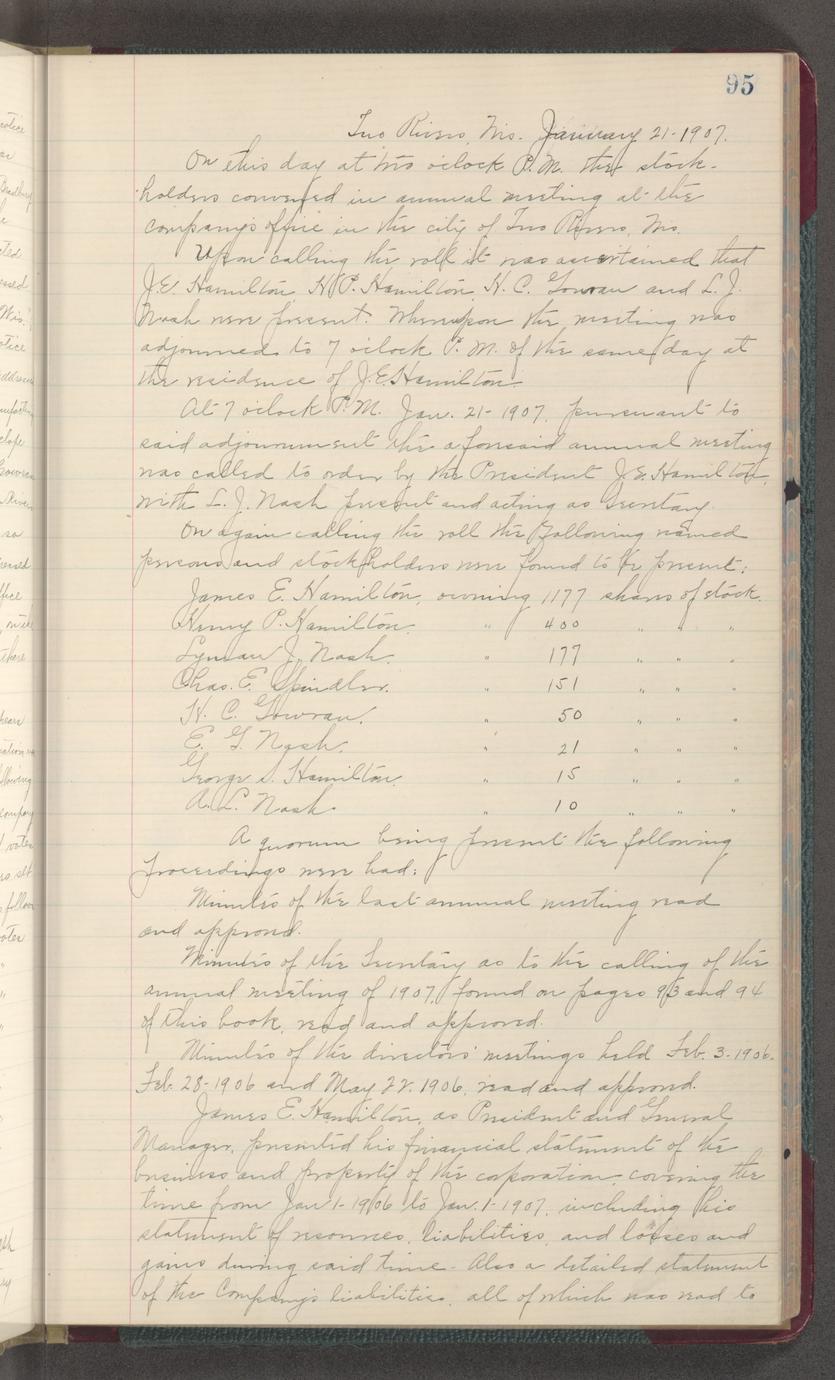 95
Two Rivers, Wis. January 21-1907.
On this day at two o'clock P.M. the stock-
holders convened in annual meeting at the
company's office in the city of Two Rivers, Wis.
Upon calling the roll it was ascertained that
J.E. Hamilton, H.P. Hamilton, H.C. Gowran and L.J.
Nash were present. Whereupon the meeting was
adjourned to 7 o'clock P.M. of the same day at
the residence of J.E. Hamilton
At 7 o'clock P.M. Jan. 21-1907, pursuant to
said adjournment the aforesaid annual meeting
was called to order by the President J.E. Hamilton,
with L.J. Nash present and acting as Secretary.
On again calling the roll the following named
persons and stockholders were found to be present:
James E. Hamilton, owning 1177 shares of stock.
Henry P. Hamilton. " 400 " " "
Lyman J. Nash. " 177 " " "
Chas. E. Spindler. " 151 " " "
H. C. Gowran. " 50 " " "
E. G. Nash. " 21 " " "
George S. Hamilton. " 15 " " "
A. L. Nash. " 10 " " "
A quorum being present the following
proceedings were had:
Minutes of the last annual meeting read
and approved.
Minutes of the Secretary as to the calling of the
annual meeting of 1907, found on pages 93 and 94
of this book, read and approved.
Minutes of the directors' meetings held Feb. 3-1906.
Feb. 28-1906 and May 22. 1906, read and approved.
James E. Hamilton, as President and General
Manager, presented his financial statement of the
business and property of the corporation, covering the
time from Jan 1-1906 to Jan. 1-1907, including his
statement of resources, liabilities, and losses and
gains during said time. Also a detailed statement
of the Company's liabilities, all of which was read to